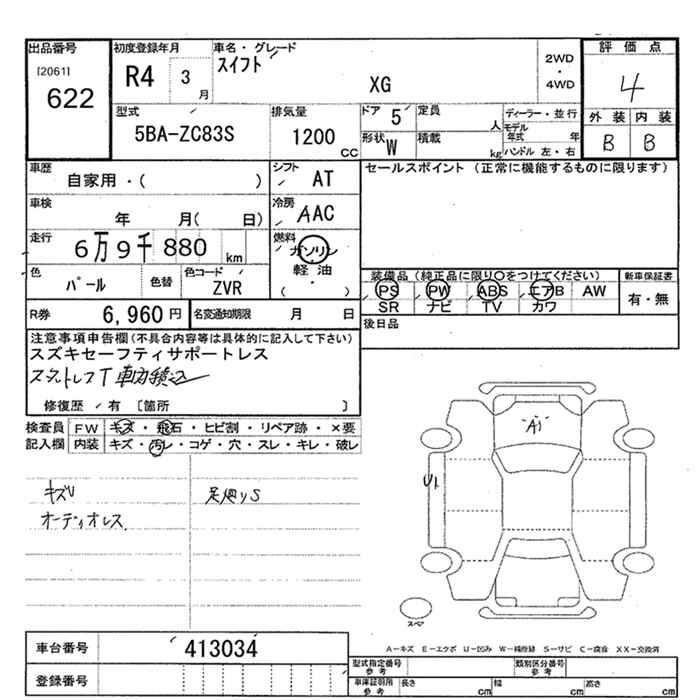 出品番号
[2061]
622
初度登録年月
R4 3月
車名・グレード
スイフト
XG
2WD
・
4WD
評価点
4
外装 内装
B B
型式
5BA-ZC83S
排気量
1200 CC
ドア 5
定員 人
形状 W
積載 kg
ディーラー・並行
モデル年式 年
ハンドル 左・右
車歴
自家用・( )
シフト
AT
車検
年 月( 日)
冷房
AAC
走行
6万9千880 km
燃料
ガソリン
軽油
( ・ )
色
パール
色替
色コード
ZVR
R券 6,960円
名変通知期限 月 日
セールスポイント (正常に機能するものに限ります)
装備品 (純正品に限り○をつけてください)
PS PW ABS エアB AW
SR ナビ TV カワ
新車保証書
有・無
後日品
注意事項申告欄(不具合内容等は具体的に記入して下さい)
スズキセーフティサポートレス
修復歴 有 [箇所 ]
検査員 FW キズ・飛石・ヒビ割・リペア跡・×要
記入欄 内装 キズ・汚レ・コゲ・穴・スレ・キレ・破レ
オーディオレス
A1
U1
スペア
車台番号 413034
登録番号
A－キズ E－エクボ U－凹み W－補修跡 S－サビ C－腐食 XX－交換済
型式指定番号
参考
類別区分番号
参考
車庫証明用
参考
長さ cm 幅 cm 高さ cm